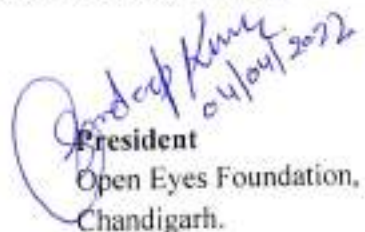 Sandeep Kumar
04/04/2022
President
Open Eyes Foundation,
Chandigarh.